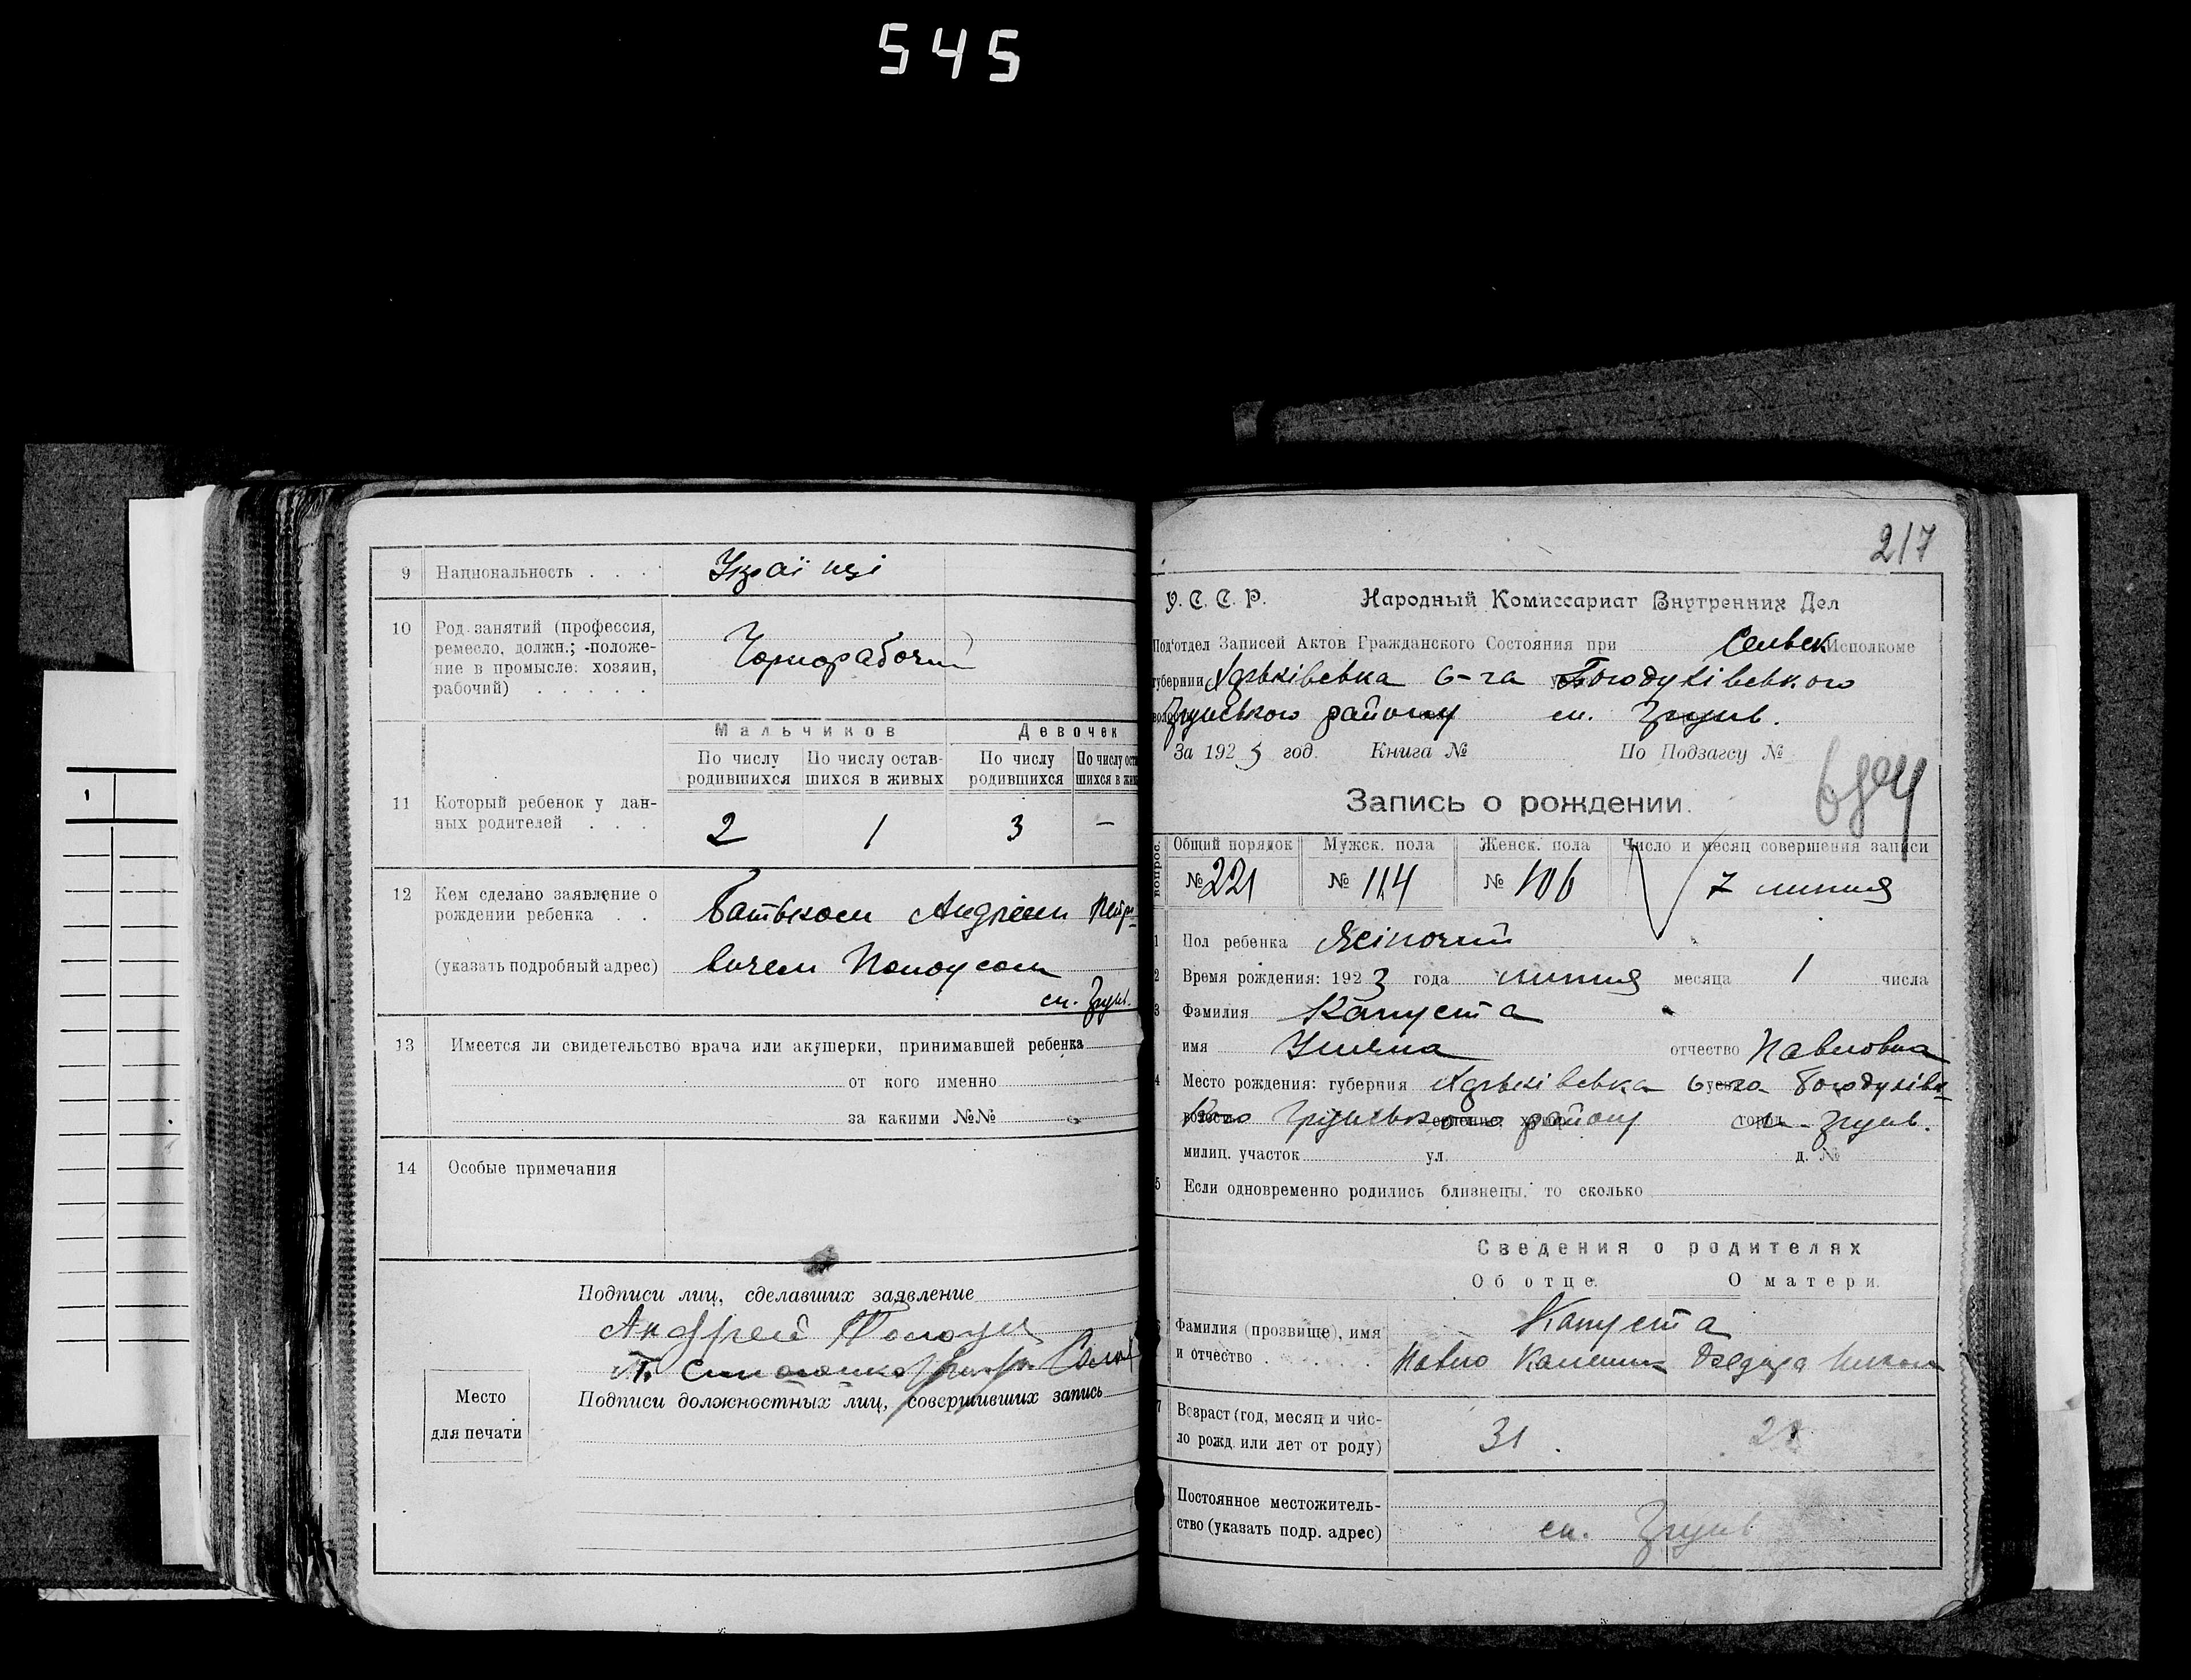 545
9 Национальность . . . Українці
10 Род занятий (профессия, ремесло, должн.; -положение в промысле: хозяин, рабочий) . . . . . . Чорнорабочий
Мальчиков Девочек
По числу родившихся По числу оставшихся в живых По числу родившихся По числу ост шихся в жив
11 Который ребенок у данных родителей . . . 2 1 3 —
12 Кем сделано заявление о рождении ребенка . . Батьком Андрієм Петро-
(указать подробный адрес) вичем
сл. Грунь.
13 Имеется ли свидетельство врача или акушерки, принимавшей ребенка
от кого именно
за какими №№
14 Особые примечания
Подписи лиц, сделавших заявление
Андрей
Подписи должностных лиц, совершивших запись
Место
для печати
217
У. С. С. Р. Народный Комиссариат Внутренних Дел
Под'отдел Записей Актов Гражданского Состояния при Сельвик Исполкоме
губернии Харьківська б-га Богодухівського
Грунського району сл. Грунь.
За 1923 год. Книга № По Подзагсу №
Запись о рождении.
вопрос. Общий порядок Мужск. пола Женск. пола Число и месяц совершения записи
№ 221 № 114 № 106 7 липня
1 Пол ребенка Жіночий
2 Время рождения: 1923 года липня месяца 1 числа
3 Фамилия Капуста
имя Уляна отчество Павловна
4 Место рождения: губерния Харьківська Богодухівсь-
кого Грунського району сл. Грунь.
милиц. участок ул. д. №
5 Если одновременно родились близнецы, то сколько
Сведения о родителях
Об отце. О матери.
6 Фамилия (прозвище), имя и отчество . . . . Капуста
Павло
7 Возраст (год, месяц и число рожд. или лет от роду) 31.
Постоянное местожительство (указать подр. адрес) сл. Грунь